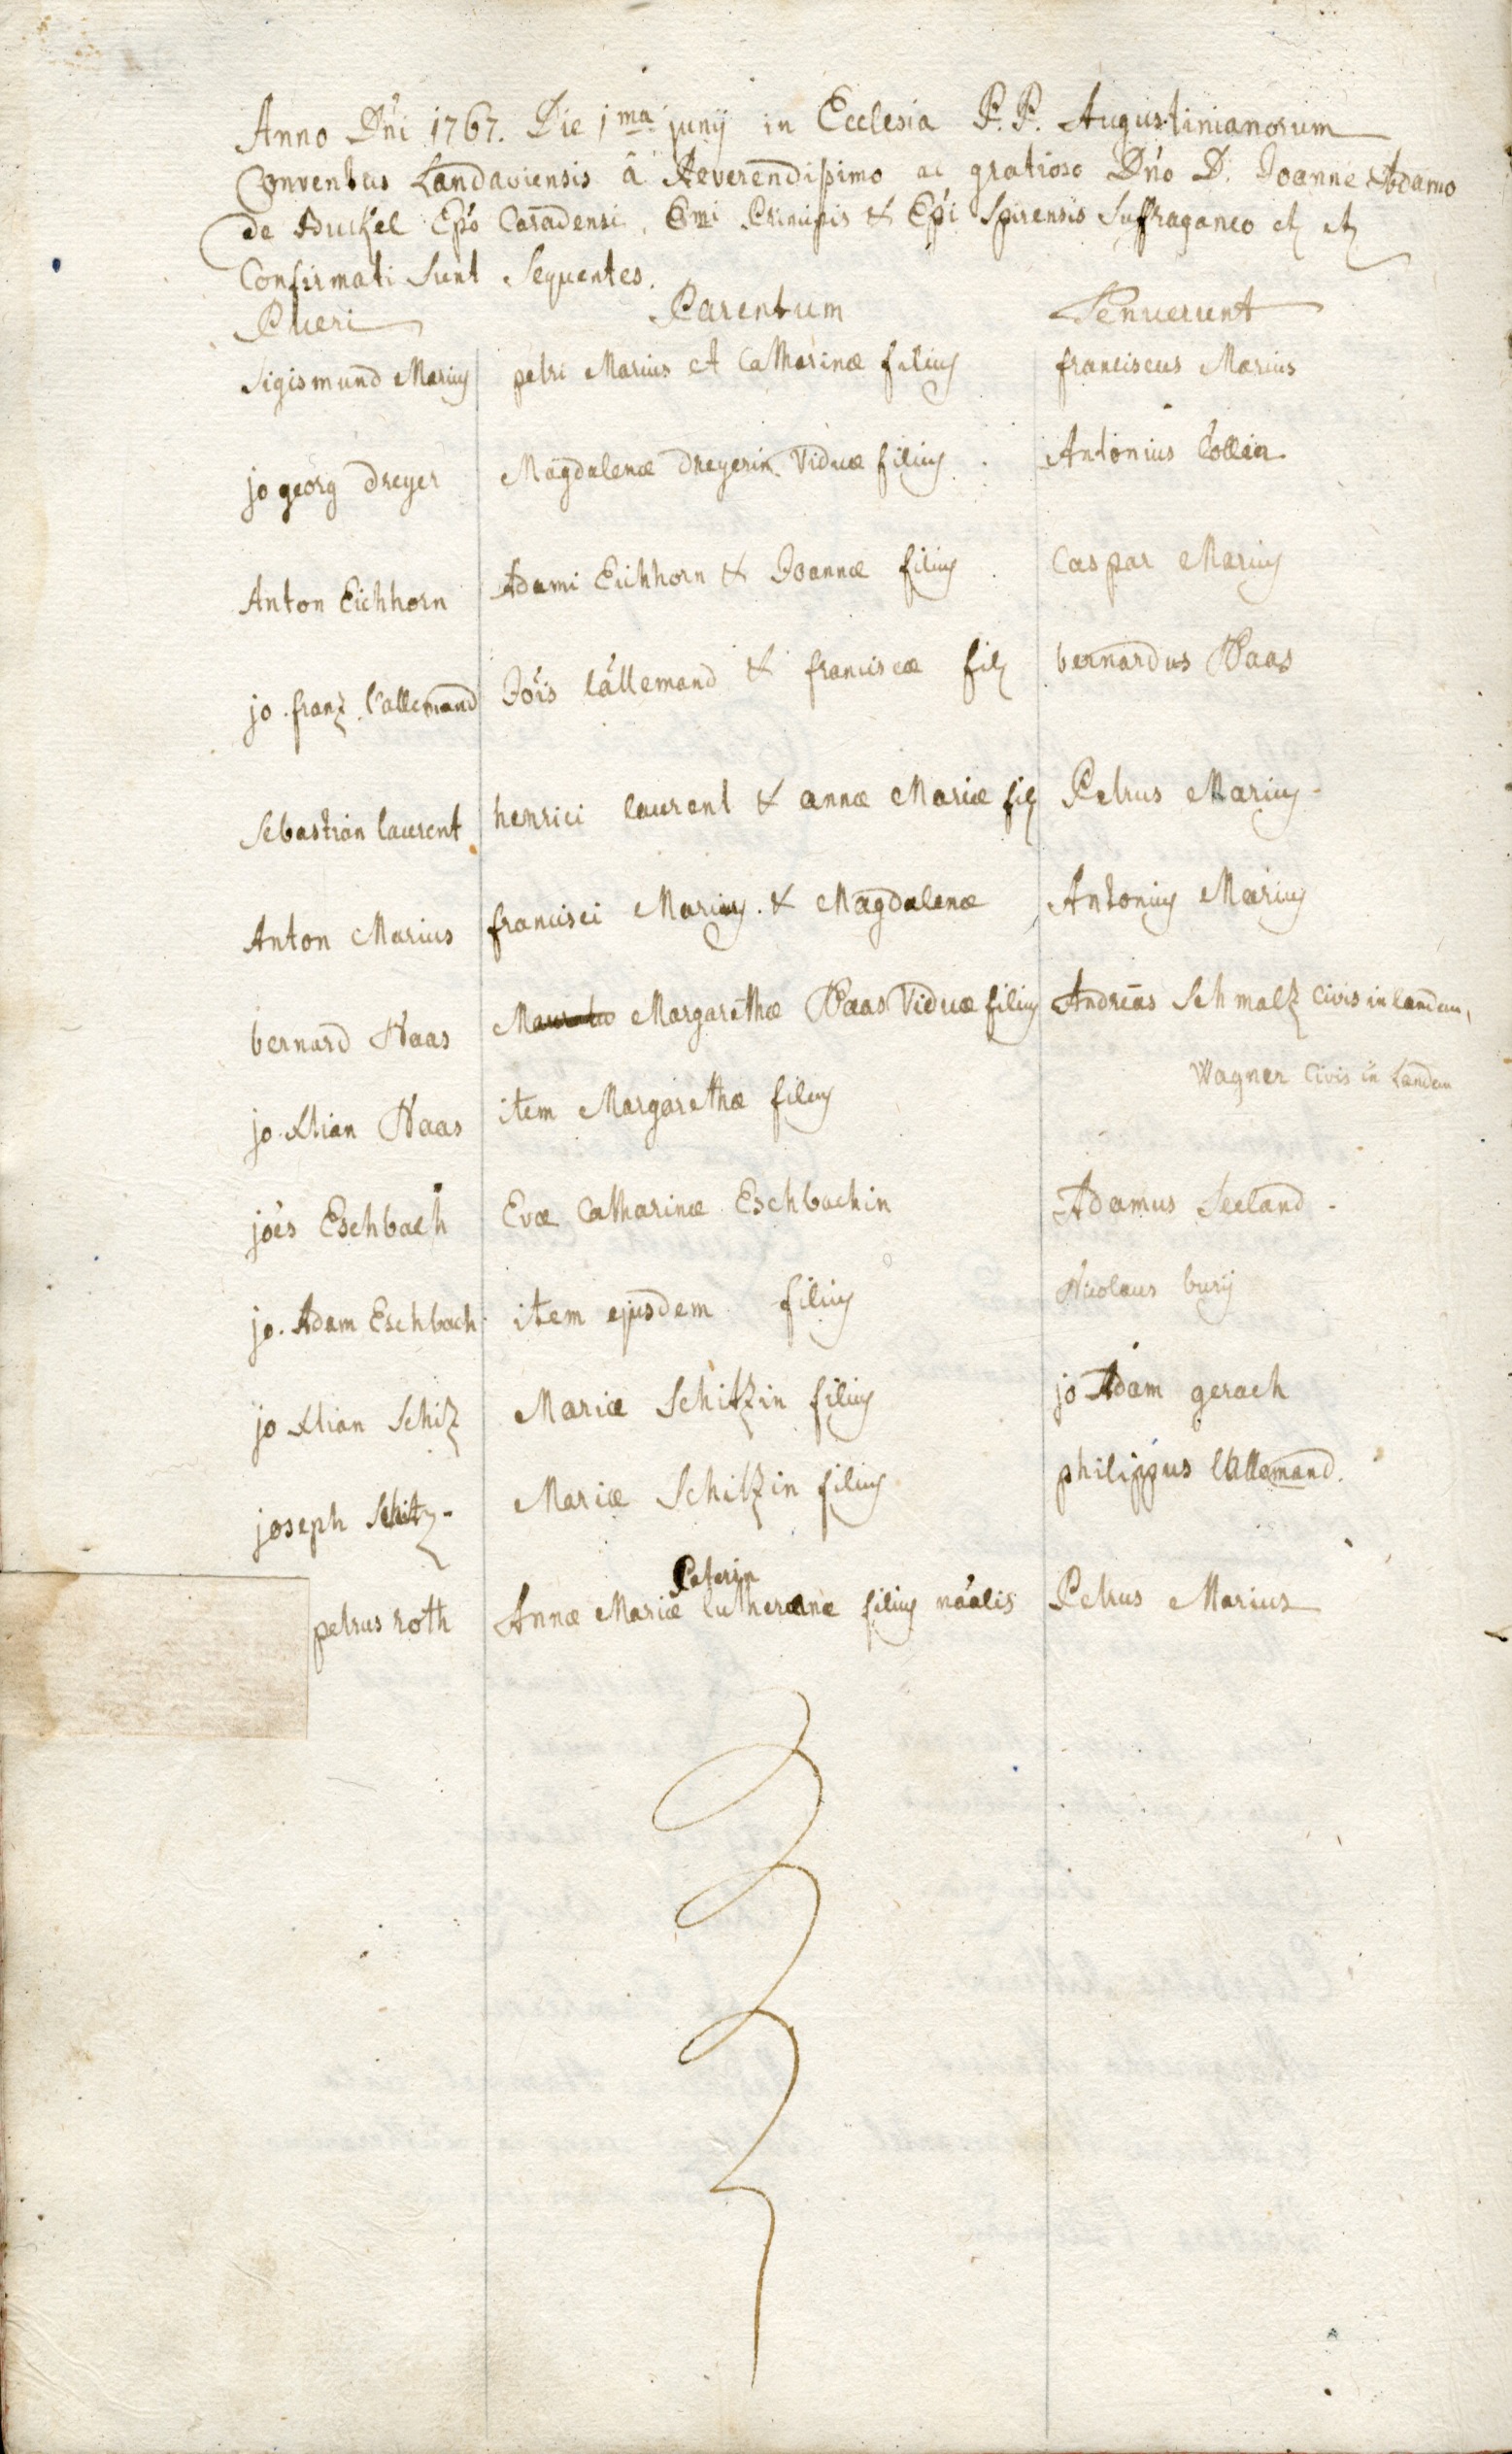 Anno Dñi 1767. Die 1ma junÿ in Ecclesia P. P. Augustinianorum
Conventus Landaviensis â Reverendissimo ac gratioso Dño D. Joanne Adamo
de Buckel Epo Caradensi, Emi Principis & Epi Spirensis Suffraganeo etc etc
Confirmati Sunt Sequentes.
Pueri Parentum Tenuerunt
Sigismund Marius petri Marius et Catharinæ filius franciscus Marius
jo georg Dreyer Magdalenæ Dreyerin Viduæ filius Antonius Collin
Anton Eichhorn Adami Eichhorn & Joannæ filius Caspar Marius
jo. franz l'allemand Jois l'allemand & franciscæ fil bernardus Haas
Sebastian laurent henrici laurent & annæ Mariæ fil Petrus Marius
Anton Marius francisci Marius & Magdalenæ Antonius Marius
bernard Haas Margarethæ Haas Viduæ filius Andreas Schmalz Civis in landau,
Wagner Civis in Landau
jo Xtian Haas item Margarethæ filius
joes Eschbach Evæ Catharinæ Eschbachin Adamus Seeland.
jo. Adam Eschbach item ejusdem filius Nicolaus burÿ
jo Xtian Schitz Mariæ Schitzin filius jo Adam gerach
joseph Schitz Mariæ Schitzin filius philippus l'Allemand.
Peterin
petrus roth Annæ Mariæ lutheranæ filius nãalis Petrus Marius